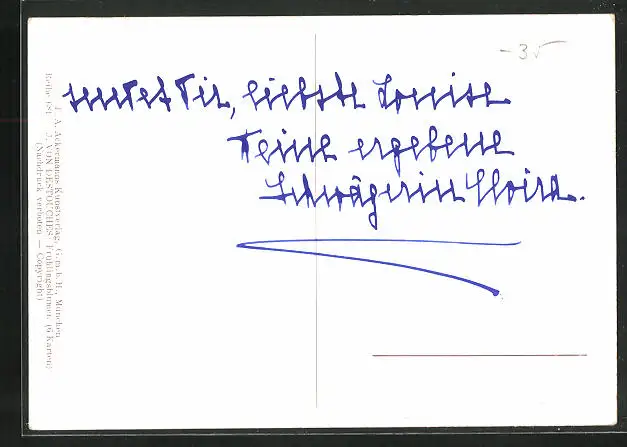 -35
sendet Dir, liebste Louise
Deine ergebene
Schwägerin Elvira.
F. A. Ackermanns Kunstverlag, G.m.b.H., München
Reihe 681. J. VON DESTOUCHES: Frühlingsblumen (6 Karten)
(Nachdruck verboten — Copyright)